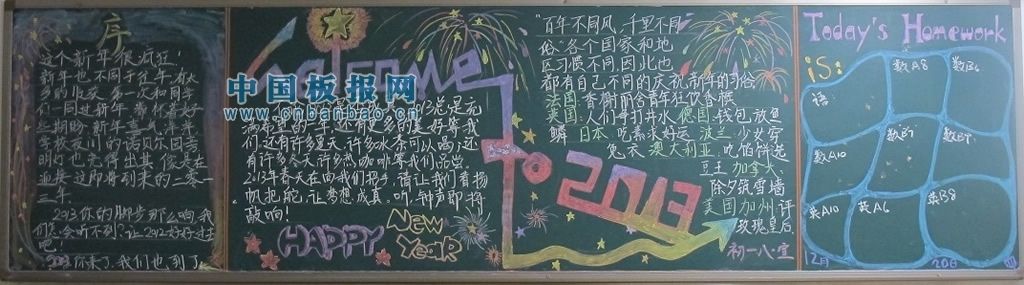 这个新年很疯狂！
新年也不同于往年有太
多的收获.第一次和同学
们一同过新年.带怀着好
些期盼.新年喜气洋洋
迎接这即将到来的二零一
三年
2013你的脚步那么响,我
们怎会听不到?让2012好好过去
吧!
2013你来了.我们也到了
Welcome
中国板报网
www.cnbanbao.cn
2013总是充
满希望的一年.还有更多的美好等我
们.还有许多夏天.许多冰茶可以喝;还
有许多冬天.许多热咖啡等我们品尝
2013年春天在向我们招手,请让我们着扬
帆把舵,让梦想成真。听,钟声即将
敲响!
HAPPY
NEW
YeaR
To 2013
"百年不同风,千里不同
俗.各个国家和地
区习惯不同.因此也
都有自己不同的庆祝新年的习俗
法国:香榭丽舍青年狂饮香槟
英国:人们争打井水 德国:钱包放鱼
鳞 日本:吃素求好运 波兰:少女穿
兔衣 澳大利亚:吃馅饼选
豆王 加拿大:
除夕筑雪墙
美国加州:评
玫瑰皇后
初一八·宣
Today's Homework
is:
语
数A8
数B6
数A10
数B7
数B7
英A10
英A6
英B8
12月
20日
四